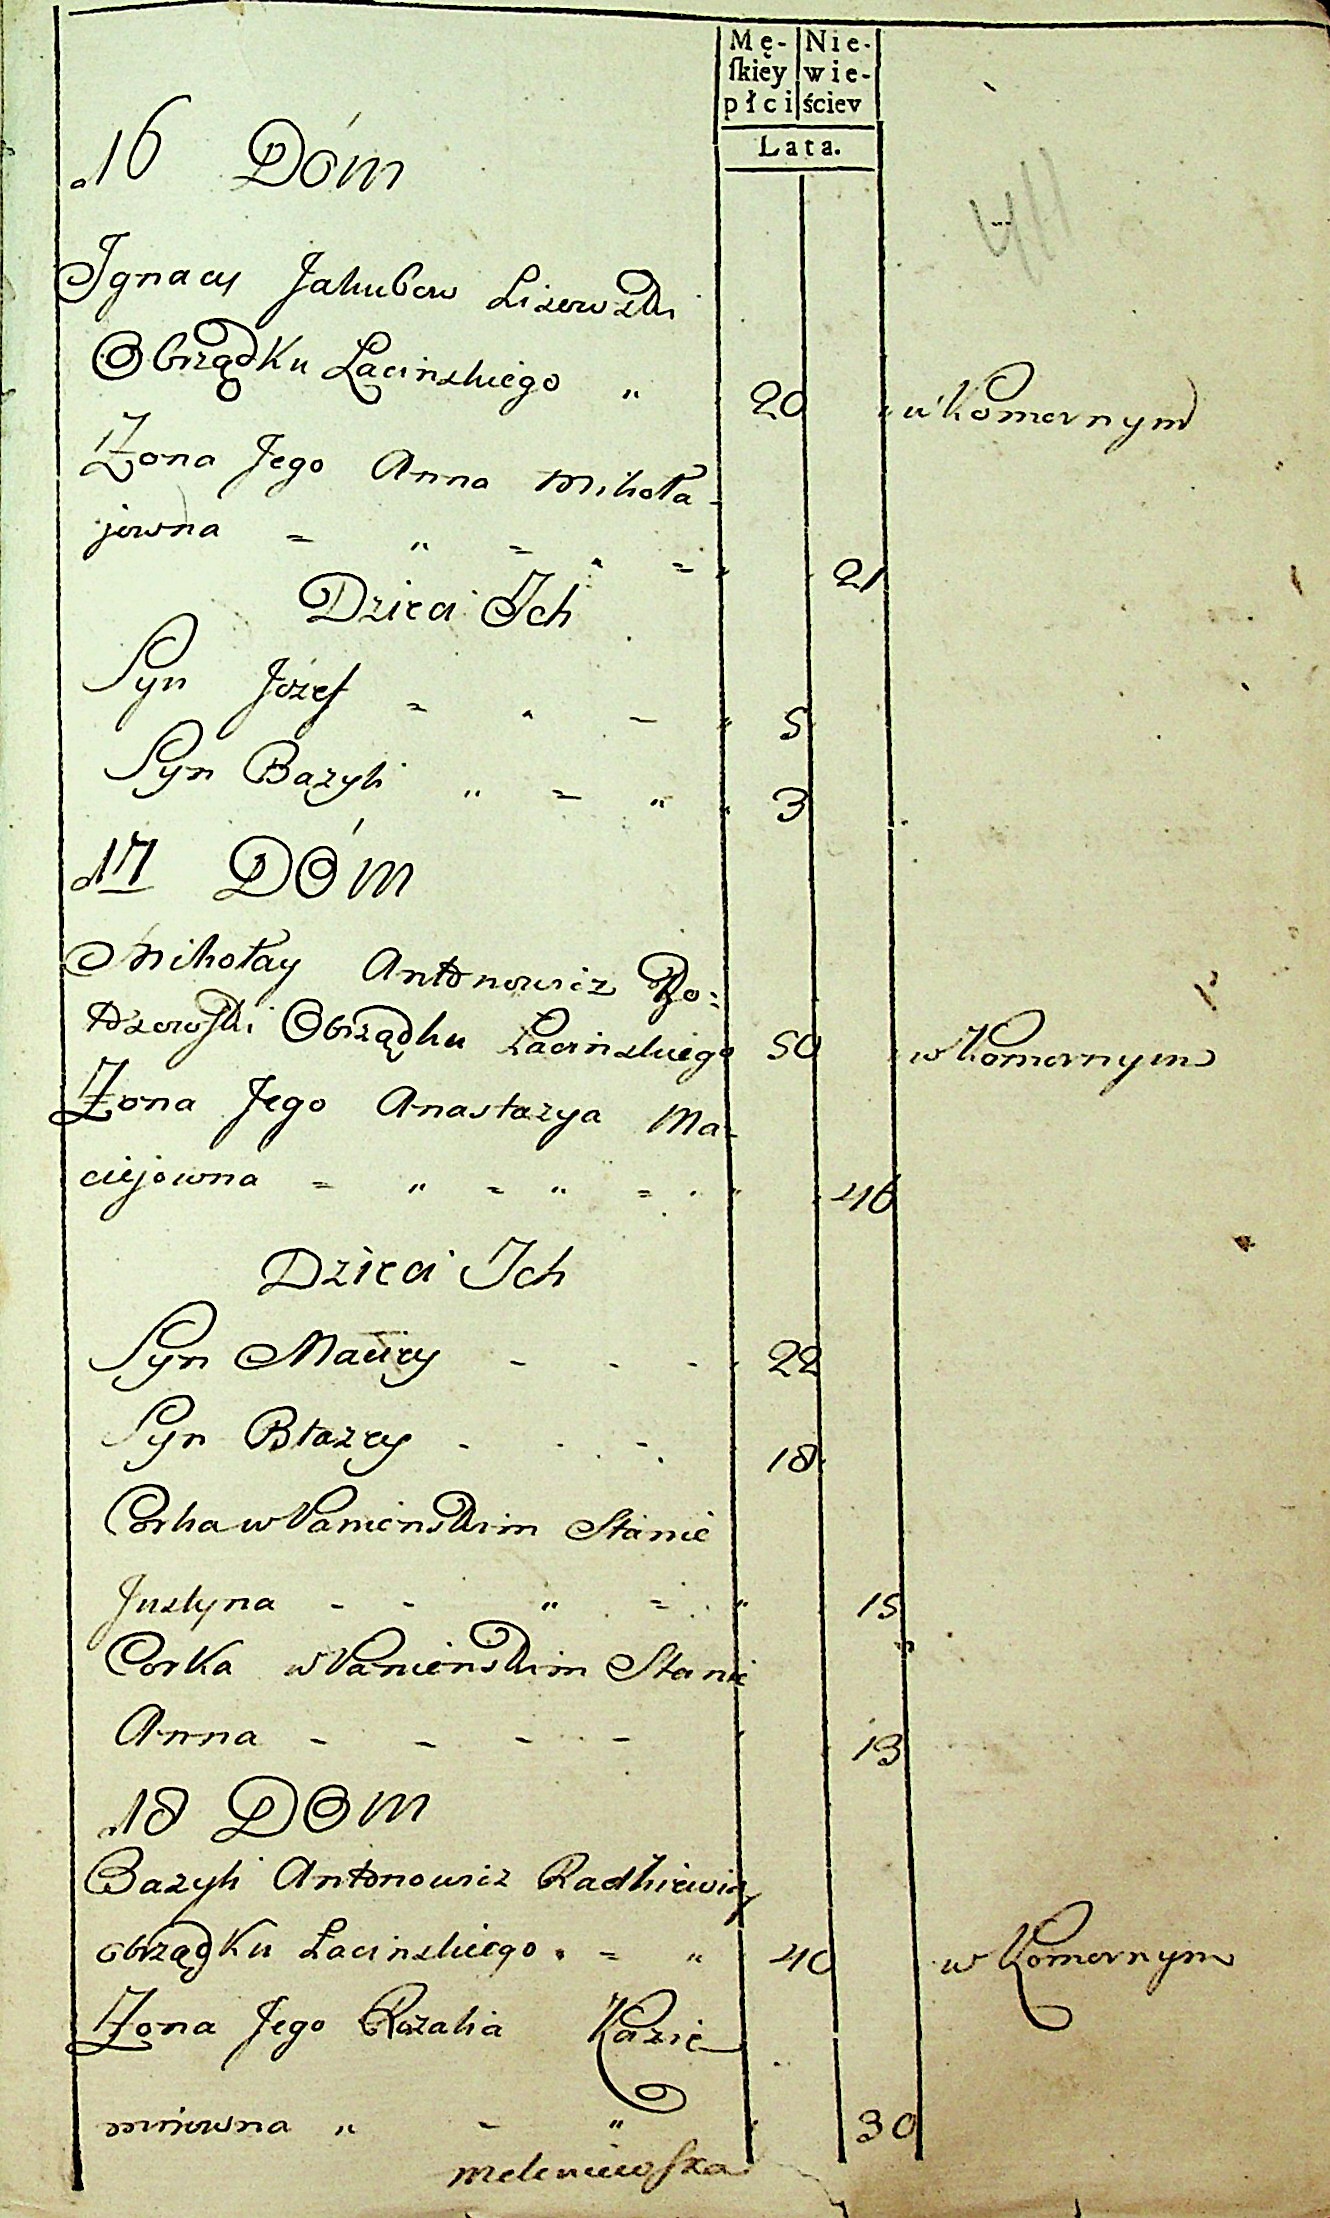 Mę- Nie-
ſkiey wie-
płci ściey
Lata.
16 Dóm
Jgnacy Jakubow Lisowski
Obrządku Łacinskiego 20 w Komornym
Żona Jego Anna Mikoła-
jowna 21
Dzieci Jch
Syn Józef 5
Syn Bazyli 3
17 Dóm
Mikołay Antonowicz
Obrządku Łacinskiego 50 w Komornym
Żona Jego Anastazya Ma-
ciejowna 46
Dzieci Jch
Syn Maciey 22
Syn Błażey 18
Corka w Panienskim Stanie
Justyna 15
Corka w Panienskim Stanie
Anna 13
18 Dom
Bazyli Antonowicz Radkiewicz
obrządku Łacinskiego 40 w Komornym
Żona Jego Rozalia Kazie-
mirowna 30
meleniewſka